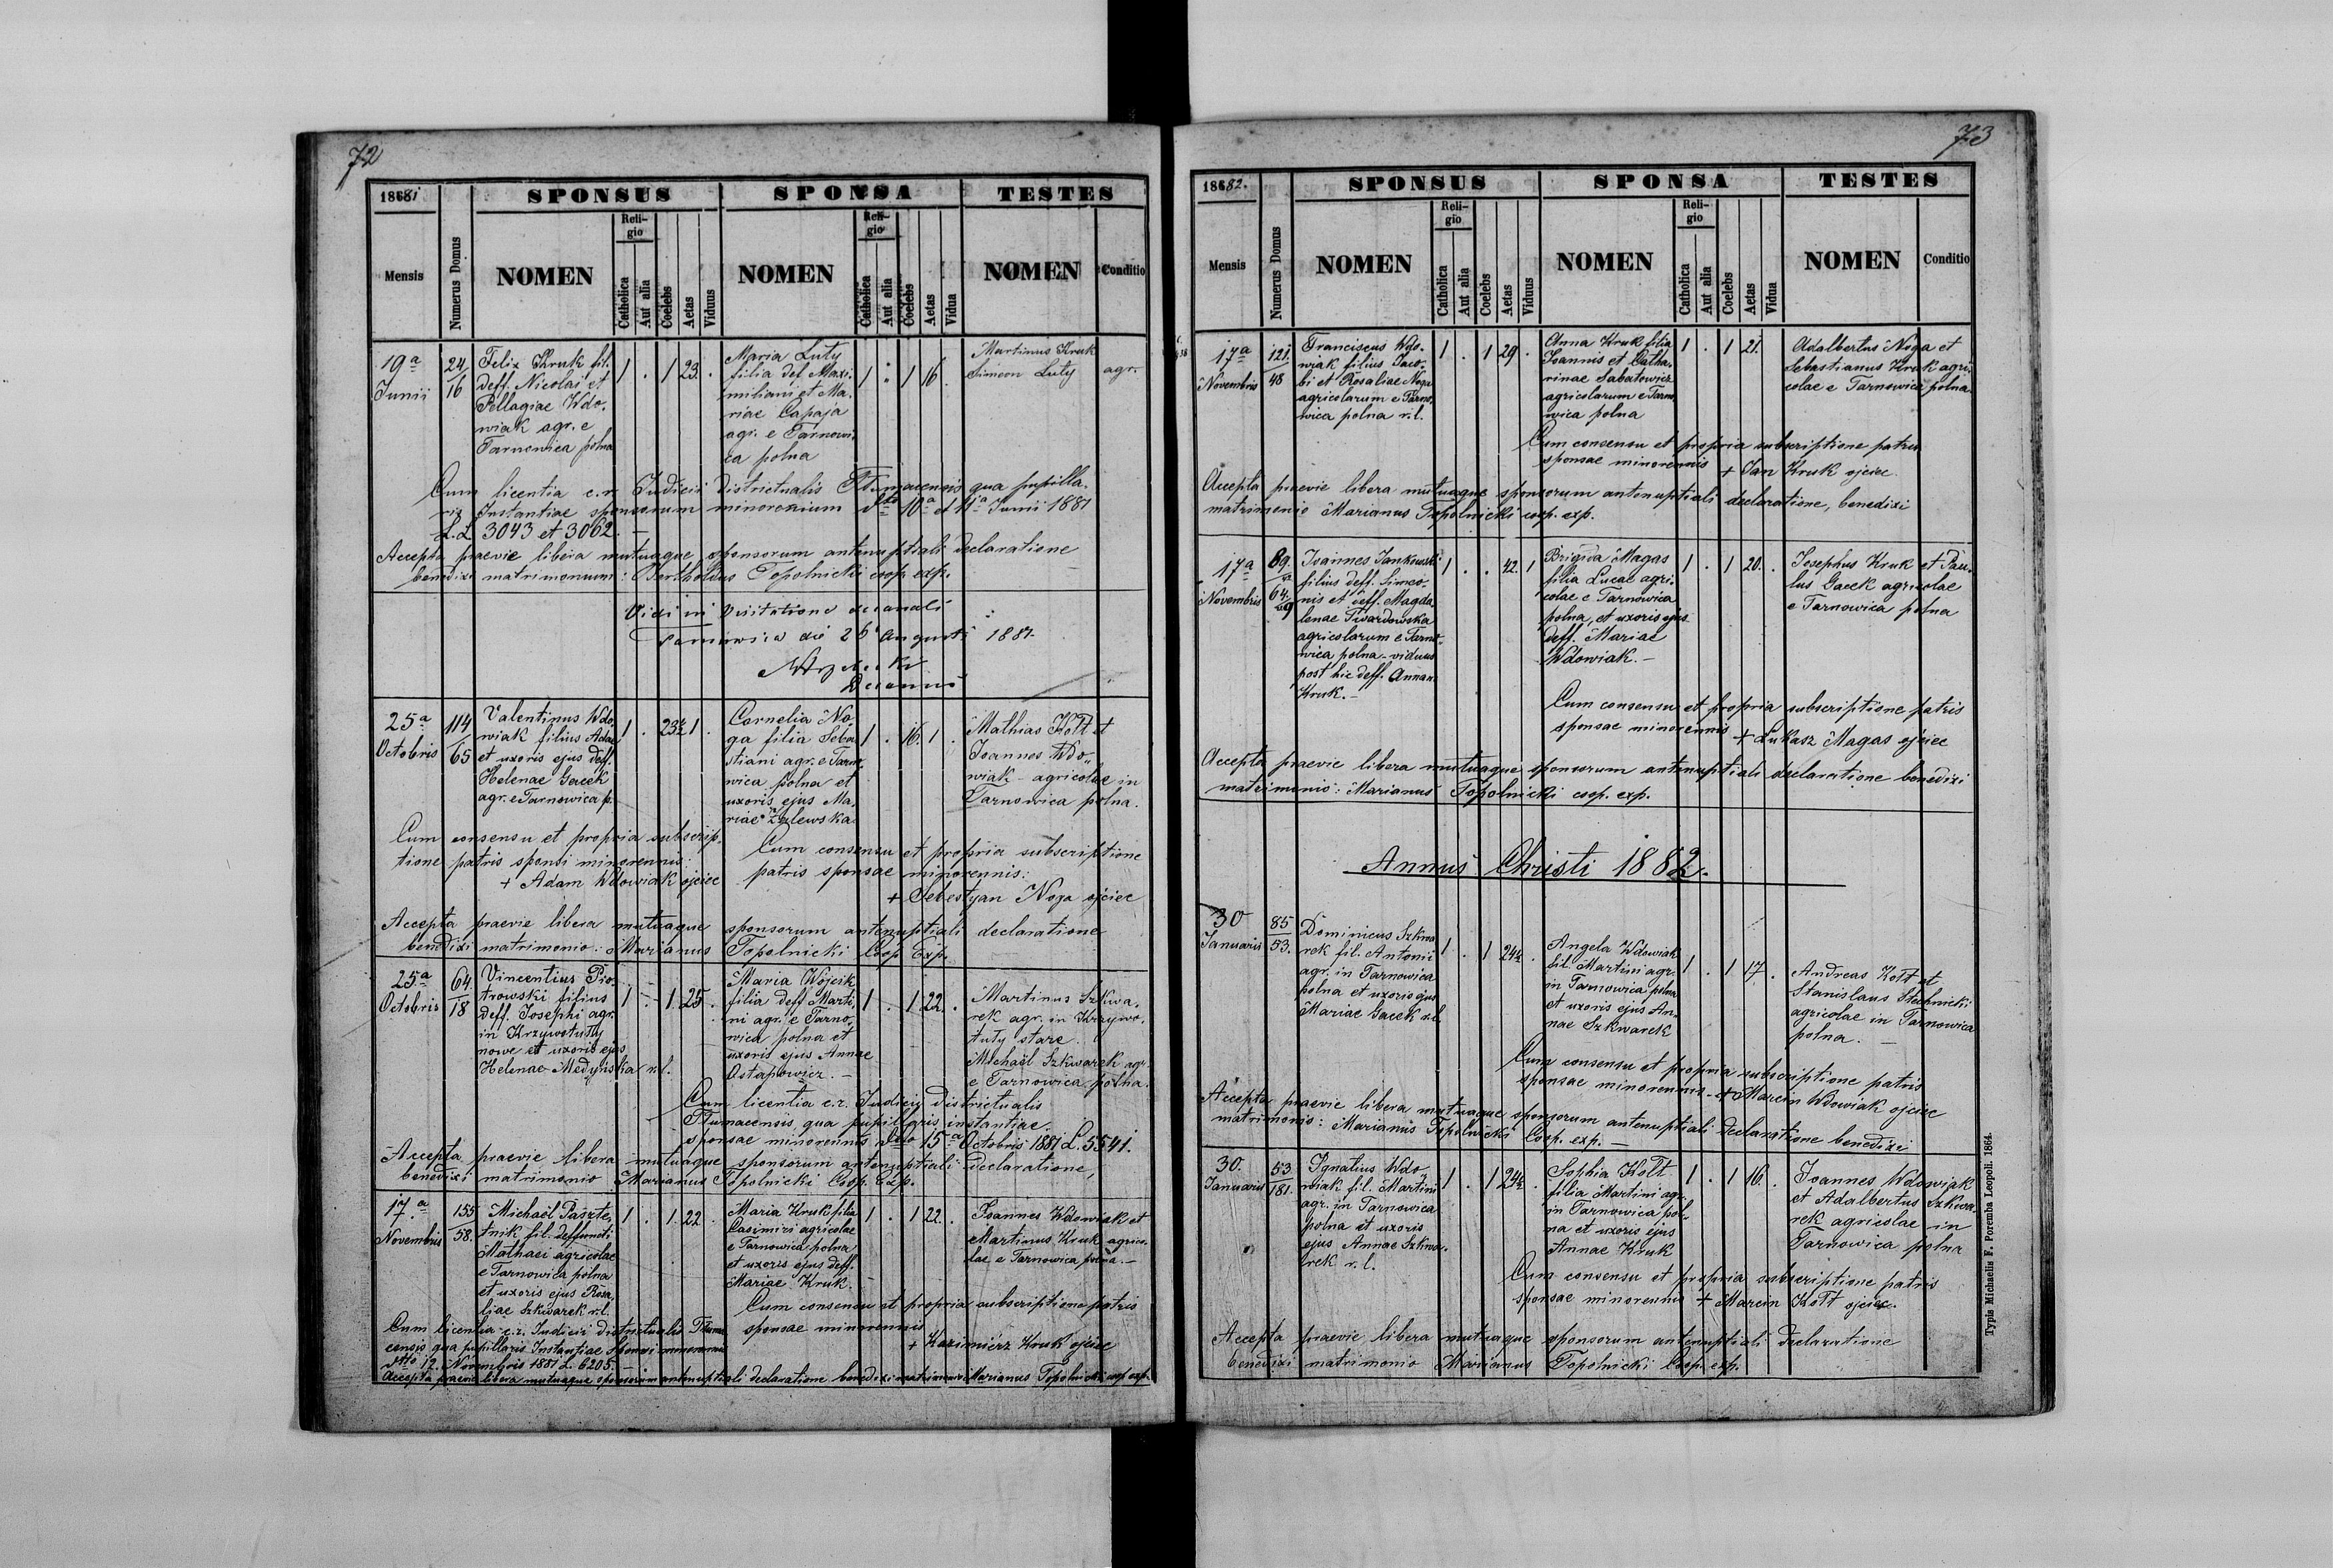 72
1881
SPONSUS
SPONSA
TESTES
Mensis
Numerus Domus
NOMEN
Religio
Catholica
Aut alia
Coelebs
Aetas
Viduus
NOMEN
Religio
Catholica
Aut alia
Coelebs
Aetas
Vidua
NOMEN
Conditio
19a
Junii
24
16
Felix Kruk fil.
deff. Nicolai et
Pellagiae Wdo-
wiak agr. e
Tarnowica polna
1 . 1 23. .
Maria Luty
filia def. Maxi-
miliani et Ma-
riae Capaja
agr. e Tarnowi-
ca polna
1 . 1 16 .
Martinus Kruk
Simeon Luty agr.
Cum licentia c.r. Judicii districtualis Tłumacensis qua pupilla-
ris Instantiae sponsorum minorenium dto 10a et 11a Junii 1881
L.L. 3043 et 3062. —
Accepta praevie libera mutuaque sponsorum antenuptiali declaratione
benedixi matrimonium: Bertholdus Topolnicki coop. exp.
Vidi in visitatione decanali
Tarnowica die 26 Augusti 1881.
Decanus
25a
Octobris
114
65
Valentinus Wdo-
wiak filius Adae
et uxoris ejus deff.
Helenae Gacek
agr. e Tarnowica p.
1 . 23½ 1 .
Cornelia No-
ga filia Seba-
stiani agr. e Tarno-
wica polna et
uxoris ejus Ma-
riae Zalewska
1 . 16. 1 .
Mathias Kott et
Joannes Wdo-
wiak - agricolae in
Tarnowica polna.
Cum consensu et propria subscrip-
tione patris sponsi minorennis:
+ Adam Wdowiak ojciec
Cum consensu et propria subscriptione
patris sponsae minorennis:
+ Sebestyan Noga ojciec
Accepta praevie libera mutuaque sponsorum antenuptiali declaratione
benedixi matrimonio: Marianus Topolnicki Coop. Exp.
25a
Octobris
64.
18
Vincentius Pio-
trowski filius
deff. Josephi agr.
in Krzywotuły
nowe et uxoris ejus
Helenae Medyńska r.l.
1 . 1. 25 .
Maria Wójcik
filia deff. Marti-
ni agr. e Tarno-
wica polna et
uxoris ejus Annae
Ostapowicz. —
1 . 1 22. .
Martinus Szkwa-
rek agr. in Krzywo-
tuły stare.
Michaël Szkwarek agr.
e Tarnowica polna.
Cum licentia c.r. Judicii districtualis
Tłumacensis, qua pupillaris instantiae
sponsae minorennis dtto 15a Octobris 1881 L. 5541.
Accepta praevie libera mutuaque sponsorum antenuptiali declaratione,
benedixi matrimonio Marianus Topolnicki Coop. Exp.
17a
Novembris
155
58.
Michaël Paszte-
tnik fil. deffuncti
Mathaei agricolae
e Tarnowica polna
et uxoris ejus Rosa-
liae Szkwarek r.l.
1 . 1. 22 .
Maria Kruk filia
Casimiri agricolae
e Tarnowica polna
et uxoris ejus deff.
Mariae Kruk. —
1 . 1 22. .
Joannes Wdowiak et
Martinus Kruk agrico-
lae e Tarnowica polna. —
Cum consensu et propria subscriptione patris
sponsae minorennis
+ Kazimierz Kruk ojciec
Cum licentia c.r. Judicii districtualis Tłuma-
censis qua pupillaris Instantiae sponsi minorennis
dtto 12. Novembris 1881 L. 6205. —
Accepta praevie libera mutuaque sponsorum antenuptiali declaratione benedixi matrimonio Marianus Topolnicki coop. exp.
73
1882.
SPONSUS
SPONSA
TESTES
Mensis
Numerus Domus
NOMEN
Religio
Catholica
Aut alia
Coelebs
Aetas
Viduus
NOMEN
Religio
Catholica
Aut alia
Coelebs
Aetas
Vidua
NOMEN
Conditio
17a
Novembris
121.
48
Franciscus Wdo-
wiak filius Jaco-
bi et Rosaliae Noga
agricolarum e Tarno-
wica polna r.l.
1 . 1 29 .
Anna Kruk filia
Joannis et Catha-
rinae Sabatowicz
agricolarum e Tarno-
wica polna
1 . 1 21.
Adalbertus Noga et
Sebastianus Kruk agri-
colae e Tarnowica polna.
Cum consensu et propria subscriptione patris
sponsae minorennis + Jan Kruk ojciec.
Accepta praevie libera mutuaque sponsorum antenuptiali declaratione, benedixi
matrimonio Marianus Topolnicki coop. exp.
17a
Novembris
89.
64.
Joannes Jankowski
filius deff. Simeo-
nis et deff. Magda-
lenae Twardowska
agricolarum e Tarno-
wica polna - viduus
post hic deff. Annam
Kruk. —
1 . . 42. 1
Brigida Magas
filia Lucae agri-
colae e Tarnowica
polna, et uxoris ejus
deff. Mariae
Wdowiak. —
1 . 1 20. .
Josephus Kruk et Pau-
lus Gacek agricolae
e Tarnowica polna
Cum consensu et propria subscriptione patris
sponsae minorennis + Łukasz Magas ojciec
Accepta praevie libera mutuaque sponsorum antenuptiali declaratione benedixi
matrimonio: Marianus Topolnicki coop. exp.
Annus Christi 1882.
30
Januaris
85
53.
Dominicus Szkwa-
rek fil. Antonii
agr. in Tarnowica
polna et uxoris ejus
Mariae Gacek r.l.
1 . 1 24½ .
Angela Wdowiak
fil. Martini agr.
in Tarnowica polna
et uxoris ejus An-
nae Szkwarek
1 . 1 17. .
Andreas Kott et
Stanislaus Stachnicki
agricolae in Tarnowica
polna. —
Cum consensu et propria subscriptione patris
sponsae minorennis - + Marcin Wdowiak ojciec
Accepta praevie libera mutuaque sponsorum antenuptiali declaratione benedixi
matrimonio: Marianus Topolnicki Coop. exp. —
30.
Januaris
53
181.
Ignatius Wdo-
wiak fil. Martini
agr. in Tarnowica
polna et uxoris
ejus Annae Szkwa-
rek r.l.
1 . 1 24½ .
Sophia Kott
filia Martini agr.
in Tarnowica pol-
na et uxoris ejus
Annae Kruk
1 . 1 16. .
Joannes Wdowiak
et Adalbertus Szkwa-
rek agricolae in
Tarnowica polna
Cum consensu et propria subscriptione patris
sponsae minorennis + Marcin Kott ojciec.
Accepta praevie libera mutuaque sponsorum antenuptiali declaratione
benedixi matrimonio Marianus Topolnicki Coop. exp.
Typis Michaelis F. Poremba Leopoli. 1864.